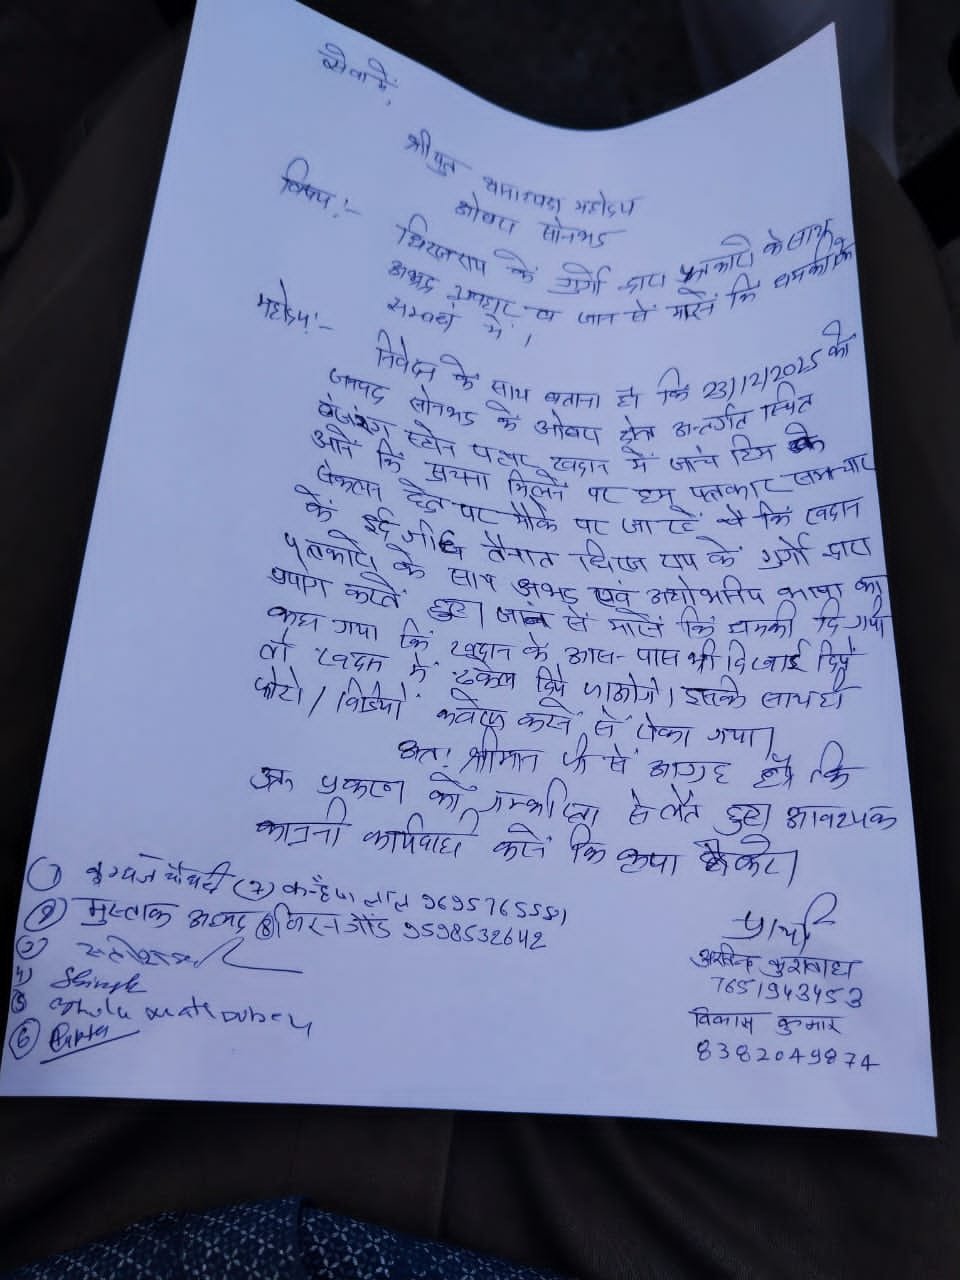 सेवा में,
श्रीयुत थानाध्यक्ष महोदय
ओबरा सोनभद्र
विषय:- धिरज राय के गुर्गो द्वारा पत्रकारो के साथ
अभद्र व्यवहार व जान से मारने कि धमकी के
सम्बन्ध में।
महोदय:-
निवेदन के साथ बताना है कि 23/12/2025 को
जनपद सोनभद्र के ओबरा क्षेत्र अन्तर्गत स्थित
बजरंग स्टोन पत्थर खदान में जांच टिम के
आने कि सूचना मिलने पर हम पत्रकार समाचार
संकलन हेतु पर मौके पर जा रहे थे कि खदान
के इर्द गीर्ध तैनात धिरज राय के गुर्गो द्वारा
पत्रकारो के साथ अभद्र एवं अशोभनिय भाषा का
प्रयोग करते हुए। जान से मारने कि धमकी दि गयी
कहा गया कि खदान के आस-पास भी दिखाई दिये
तो खदान में ढकेल दिये जाओगे। इसके साथ ही
फोटो/विडियो कवरेज करने से रोका गया।
अत: श्रीमान जी से आग्रह है कि
उक्त प्रकरण को गम्भीरता से लेते हुए आवश्यक
कानूनी कार्यवाही करने कि कृपा करे।
1) चौधरी (7) कन्हैया लाल 9695765551
(2) मुस्ताक अहमद (8) गौंड 9598532642
3)
4) Singh
5) Dubey
(6) Gupta
प्रार्थी
अरविन्द कुशवाहा
7651943453
विकास कुमार
8382049874